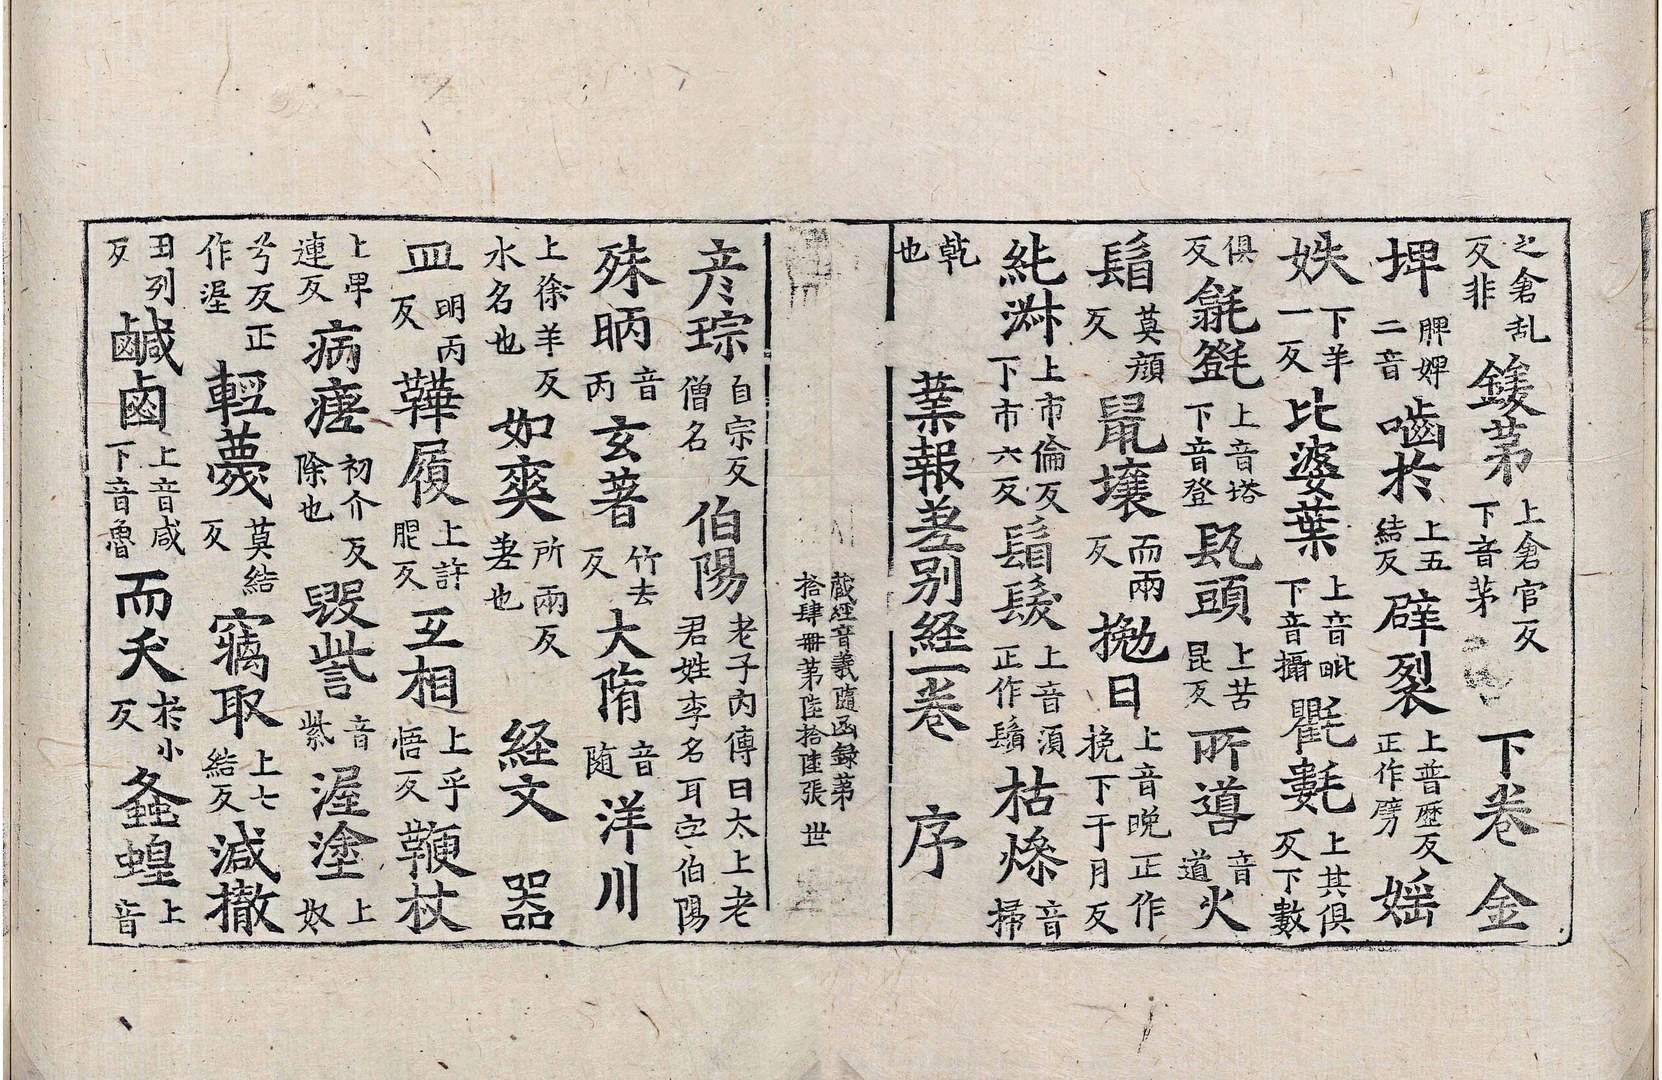 之倉乱反非鋑茅上倉官反下音茅 下卷 金
埤脾婢二音嚙於上五結反辟裂上普歷反正作劈媱
妷下羊一反比婆葉上音毗下音攝氍氀上其俱反下數
俱反㲮㲪上音塔下音登髡頭上苦昆反所導音道火
䰅莫顔反鼠壤而兩反㧾日上音晚正作挽下于月反
紌漱上市倫反下市六反䰅髮上音湏正作鬚枯燥音掃
乾也 業報差别経一卷 序
藏經音義隨函録苐拾肆冊苐陸拾陸張 世
彦琮自宗反僧名伯陽老子内傳曰太上老君姓李名耳字伯陽
殊昞音丙玄著竹去反大隋音随洋川
上徐羊反水名也如爽所兩反差也 経文 器
皿明丙反鞾履上許肥反互相上乎悟反鞭杖
上卑連反病瘥初介反除也毀訾音紫渥塗上奴
兮反正作埿輕薎莫結反竊取上七結反減撤
丑列反鹹鹵上音咸下音魯而夭於小反螽蝗上音